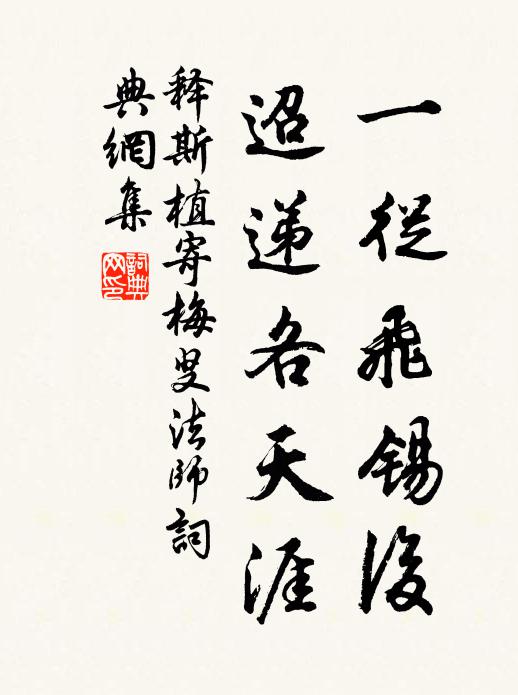 一從飛錫後
迢递各天涯
释斯植寄梅叟法師詞
典網集
詞典
网印